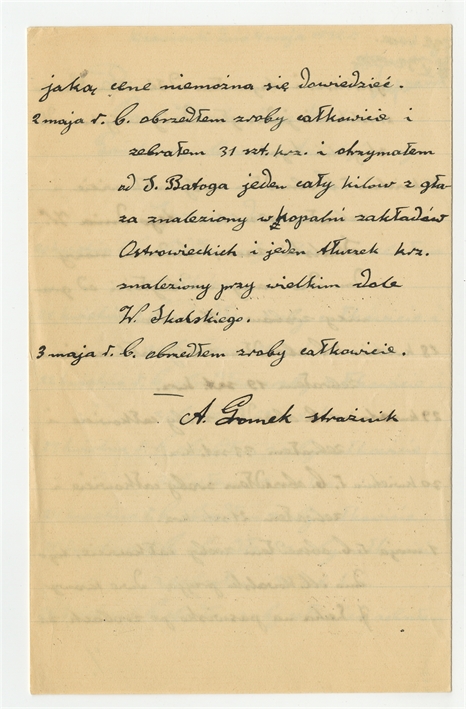 jaką cenę niemożna się dowiedzieć.
2 maja r. b. obszedłem zroby całkowicie i
zebrałem 31 szt. krz. i otrzymałem
od S. Batoga jeden cały kilow z gła-
za znaleziony w kopalni zakładów
Ostrowieckich i jeden tłuczek krz.
znaleziony przy wielkim dole
W. Skalskiego.
3 maja r. b. obszedłem zroby całkowicie.
A. Gromek strażnik